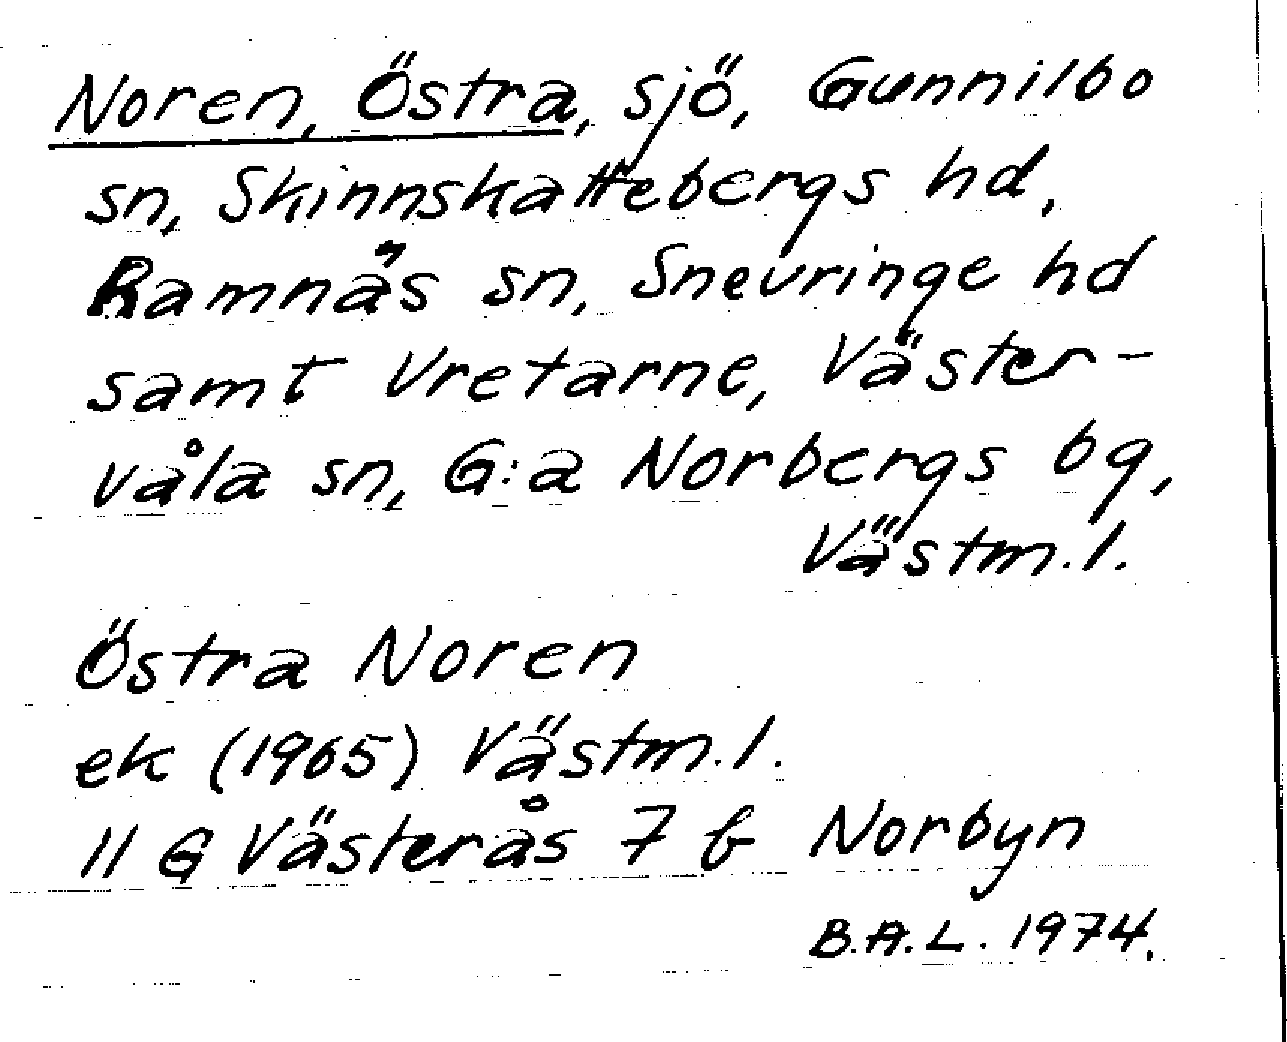 Noren, Östra, sjö, Gunnilbo
sn, Skinnskattebergs hd,
Ramnäs sn, Snevringe hd
samt Vretarne, Väster-
våla sn, G:a Norbergs bg,
Västm.l.
Östra Noren
ek (1965) Västm.l.
11 G Västerås 7 b Norbyn
B.A.L. 1974.